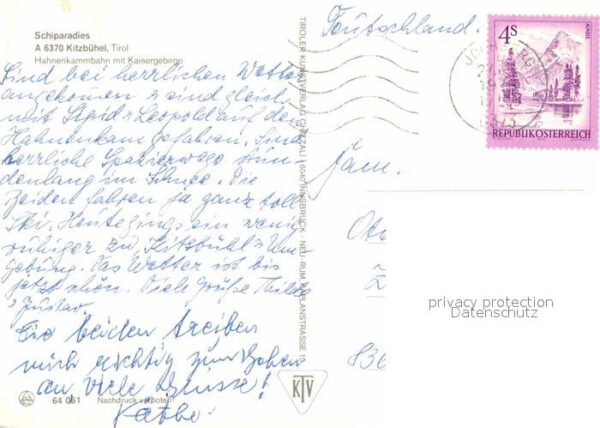 Schiparadies
A 6370 Kitzbühel, Tirol
Hahnenkammbahn mit Kaisergebirge
Sind bei herrlichen Wetter
angekommen & sind gleich
mit Sigid & Leopold auf den
Hahnenkam gefahren. Sind
herrliche Spazierwege stun-
denlang im Schnee. Die
beiden fahren ja ganz toll
Ski. Heute ging's ein wenig
ruhiger zu Kitzbühl & Um-
gebung. Das Wetter ist bis
jetzt schön. Viele Grüße Thilde
& Gustav
Die beiden treiben
mich richtig zum Gehen
an viele Grüsse!
Käthe
64 061
Nachdruck verboten!
TIROLER KUNSTVERLAG CHIZZALI 6040 INNSBRUCK - NEU-RUM, KAPLANSTRASSE 15
KTV
Deutschland.
4S
REPUBLIK ÖSTERREICH
Fam.
privacy protection
Datenschutz
836